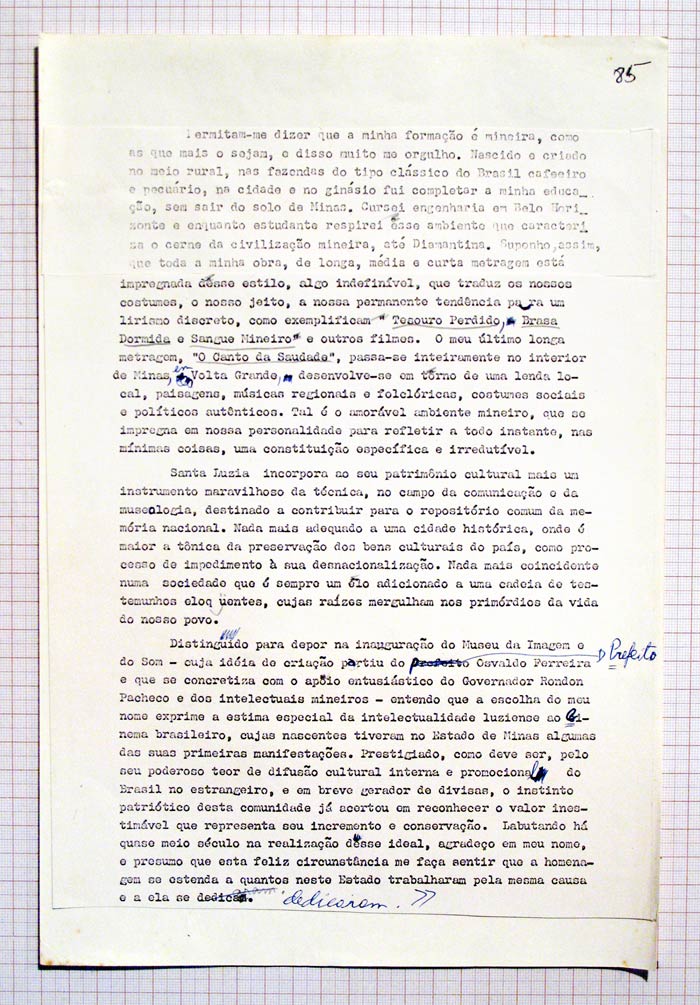 85
Permitam-me dizer que a minha formação é mineira, como
as que mais o sejam, e disso muito me orgulho. Nascido e criado
no meio rural, nas fazendas do tipo clássico do Brasil cafeeiro
e pecuário, na cidade e no ginásio fui completar a minha educa_
ção, sem sair do solo de Minas. Cursei engenharia em Belo Hori_
zonte e enquanto estudante respirei êsse ambiente que caracteri
za o cerne da civilização mineira, até Diamantina. Suponho,assim,
que toda a minha obra, de longa, média e curta metragem está
impregnada dêsse estilo, algo indefinível, que traduz os nossos
costumes, o nosso jeito, a nossa permanente tendência para um
lirismo discreto, como exemplificam " Tesouro Perdido, Brasa
Dormida e Sangue Mineiro" e outros filmes. O meu último longa
metragem, "O Canto da Saudade", passa-se inteiramente no interior
de Minas, em Volta Grande, desenvolve-se em tôrno de uma lenda lo-
cal, paisagens, músicas regionais e folclóricas, costumes sociais
e políticos autênticos. Tal é o amorável ambiente mineiro, que se
impregna em nossa personalidade para refletir a todo instante, nas
mínimas coisas, uma constituição específica e irredutível.
Santa Luzia incorpora ao seu patrimônio cultural mais um
instrumento maravilhoso da técnica, no campo da comunicação e da
museologia, destinado a contribuir para o repositório comum da me-
mória nacional. Nada mais adequado a uma cidade histórica, onde é
maior a tônica da preservação dos bens culturais do país, como pro-
cesso de impedimento à sua desnacionalização. Nada mais coincidente
numa sociedade que é sempre um êlo adicionado a uma cadeia de tes-
temunhos eloqüentes, cujas raízes mergulham nos primórdios da vida
do nosso povo.
Distinguido para depor na inauguração do Museu da Imagem e
do Som - cuja idéia de criação partiu do prefeito Osvaldo Ferreira Prefeito
e que se concretiza com o apôio entusiástico do Governador Rondon
Pacheco e dos intelectuais mineiros - entendo que a escolha do meu
nome exprime a estima especial da intelectualidade luziense ao Ci-
nema brasileiro, cujas nascentes tiveram no Estado de Minas algumas
das suas primeiras manifestações. Prestigiado, como deve ser, pelo
seu poderoso teor de difusão cultural interna e promocional do
Brasil no estrangeiro, e em breve gerador de divisas, o instinto
patriótico desta comunidade já acertou em reconhecer o valor ines-
timável que representa seu incremento e conservação. Labutando há
quase meio século na realização dêsse ideal, agradeço em meu nome,
e presumo que esta feliz circunstância me faça sentir que a homena-
gem se estenda a quantos neste Estado trabalharam pela mesma causa
e a ela se dedicam. dedicaram. >>